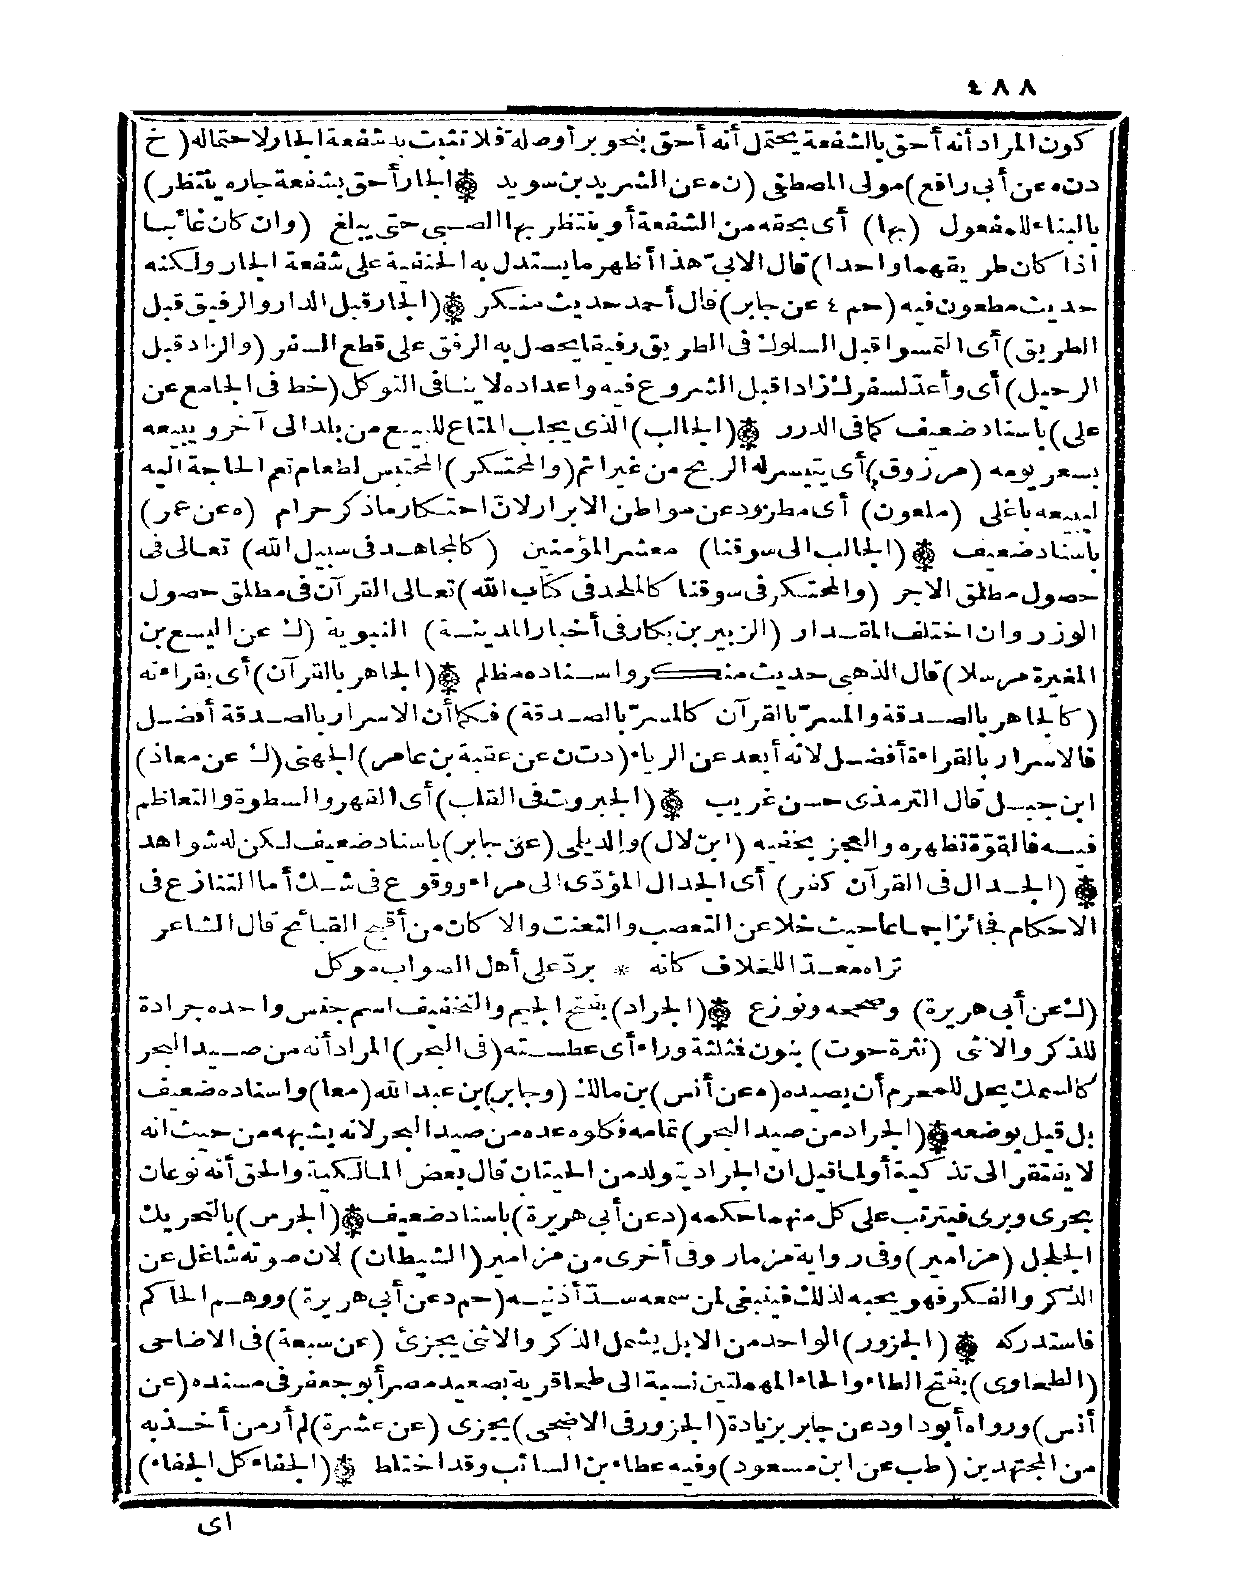 ٤٨٨
كون المراد أنه أحق بالشفعة يحتمل أنه أحق بنحو بر أو صلة فلا تثبت به شفعة الجار لاحتماله (خ
دن ه عن أبي رافع) مولى المصطفى (ن ه عن الشريد بن سويد ۞ الجار أحق بشفعة جاره ينتظر)
بالبناء للمفعول (بها) أى بحقه من الشفعة أو ينتظر بها الصبى حتى يبلغ (وان كان غائبا
اذا كان طريقهما واحدا) قال الابى هذا أظهر ما يستدل به الحنفية على شفعة الجار ولكنه
حديث مطعون فيه (حم ٤ عن جابر) قال أحمد حديث منكر ۞ (الجار قبل الدار والرفيق قبل
الطريق) أى التمسوا قبل السلوك فى الطريق رفيقا يحصل به الرفق على قطع السفر (والزاد قبل
الرحيل) أى وأعد لسفرك زادا قبل الشروع فيه واعداده لا ينافى التوكل (خط فى الجامع عن
على) باسناد ضعيف كما فى الدرر ۞ (الجالب) الذى يجلب المتاع للبيع من بلد الى آخر ويبيعه
بسعر يومه (مرزوق) أى يتيسر له الربح من غير اثم (والمحتكر) المحتبس لطعام تعم الحاجة اليه
ليبيعه باغلى (ملعون) أى مطرود عن مواطن الابرار لان احتكار ما ذكر حرام (ه عن عمر)
باسناد ضعيف ۞ (الجالب الى سوقنا) معشر المؤمنين (كالمجاهد فى سبيل الله) تعالى فى
حصول مطلق الاجر (والمحتكر فى سوقنا كالملحد فى كتاب الله) تعالى القرآن فى مطلق حصول
الوزر وان اختلف المقدار (الزبير بن بكار فى أخبار المدينة) النبوية (ك عن اليسع بن
المغيرة مرسلا) قال الذهبى حديث منكر واسناده مظلم ۞ (الجاهر بالقرآن) أى بقراءته
(كالجاهر بالصدقة والمسر بالقرآن كالمسر بالصدقة) فكما أن الاسرار بالصدقة أفضل
فالاسرار بالقراءة أفضل لانه أبعد عن الرياء (دت ن عن عقبة بن عامر) الجهنى (ك عن معاذ)
ابن جبل قال الترمذى حسن غريب ۞ (الجبروت فى القلب) أى القهر والسطوة والتعاظم
فيه فالقوة تظهره والعجز يخفيه (ابن لال) والديلمى (عن جابر) باسناد ضعيف لكن له شواهد
۞ (الجدال فى القرآن كفر) أى الجدال المؤدى الى مراء ووقوع فى شك أما التنازع فى
الاحكام فجائز اجماعا حيث خلا عن التعصب والتعنت والا كان من أقبح القبائح قال الشاعر
تراه معدا للخلاف كأنه * برد على أهل الصواب موكل
(ك عن أبى هريرة) وصححه ونوزع ۞ (الجراد) بفتح الجيم والتخفيف اسم جنس واحده جرادة
للذكر والانثى (نثرة حوت) بنون فمثلثة وراء أى عطسته (فى البحر) المراد أنه من صيد البحر
كالسمك يحل للمحرم أن يصيده (ه عن أنس) بن مالك (وجابر) بن عبد الله (معا) واسناده ضعيف
بل قيل بوضعه ۞ (الجراد من صيد البحر) تمامه فكلوه عده من صيد البحر لانه يشبهه من حيث انه
لا يفتقر الى تذكية أو لما قيل ان الجراد يتولد من الحيتان قال بعض المالكية والحق أنه نوعان
بحرى وبرى فيترتب على كل منهما حكمه (د عن أبى هريرة) باسناد ضعيف ۞ (الجرس) بالتحريك
الجلجل (مزامير) وفى رواية مزمار وفى أخرى من مزامير (الشيطان) لان صوته شاغل عن
الذكر والفكر فهو يحبه لذلك فينبغى لمن سمعه سد أذنيه (حم د عن أبى هريرة) ووهم الحاكم
فاستدركه ۞ (الجزور) الواحد من الابل يشمل الذكر والانثى يجزئ (عن سبعة) فى الاضاحى
(الطحاوى) بفتح الطاء والحاء المهملتين نسبة الى طحا قرية بصعيد مصر أبو جعفر فى مسنده (عن
أنس) ورواه أبو داود عن جابر بزيادة (الجزور فى الاضحى) يجزى (عن عشرة) لم أر من أخذ به
من المجتهدين (طب عن ابن مسعود) وفيه عطاء بن السائب وقد اختلط ۞ (الجفاء كل الجفاء)
اى